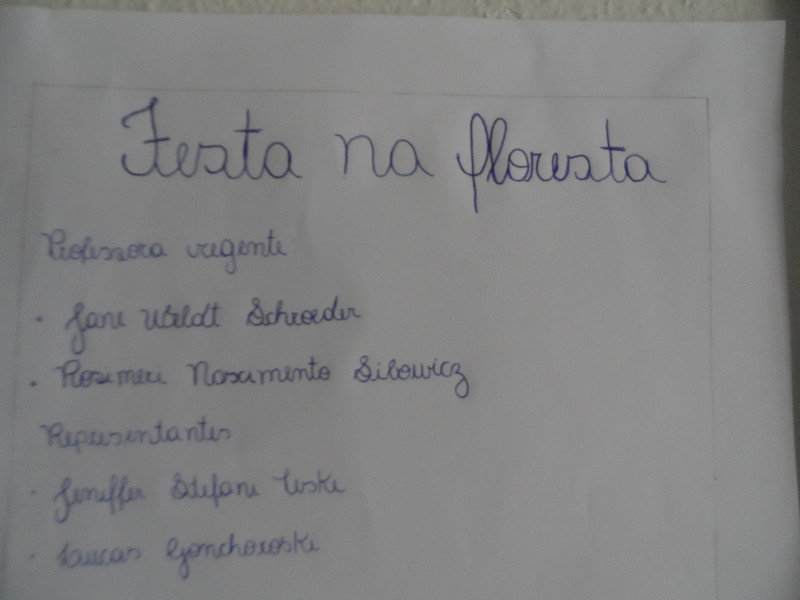 Festa na floresta
Professora regente
· Jane Weldt Schroeder
· Rosimeri Nascimento Sibowicz
Representantes
· Jeniffer Stefani Teske
· Luucas Gonchoroski